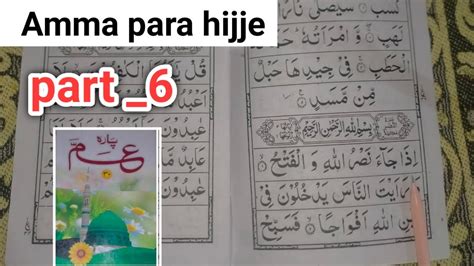 Amma para hijje
part_6
پارہ
عم
۳۰
كَسَبَ سَيَصْلٰى نَارًا
لَهَبٍ وَّ امْرَاَتُهٗ
الْحَطَبِ فِىْ جِيْدِهَا حَبْلٌ
مِّنْ مَّسَدٍ
بِسْمِ اللهِ الرَّحْمٰنِ الرَّحِيْمِ
اِذَا جَآءَ نَصْرُ اللهِ وَ الْفَتْحُ
رَاَيْتَ النَّاسَ يَدْخُلُوْنَ فِىْ
اللهِ اَفْوَاجًا فَسَبِّحْ
قُلْ
اَعْبُدُ
عٰبِدُوْنَ
عَابِدٌ مَّا
عٰبِدُوْنَ